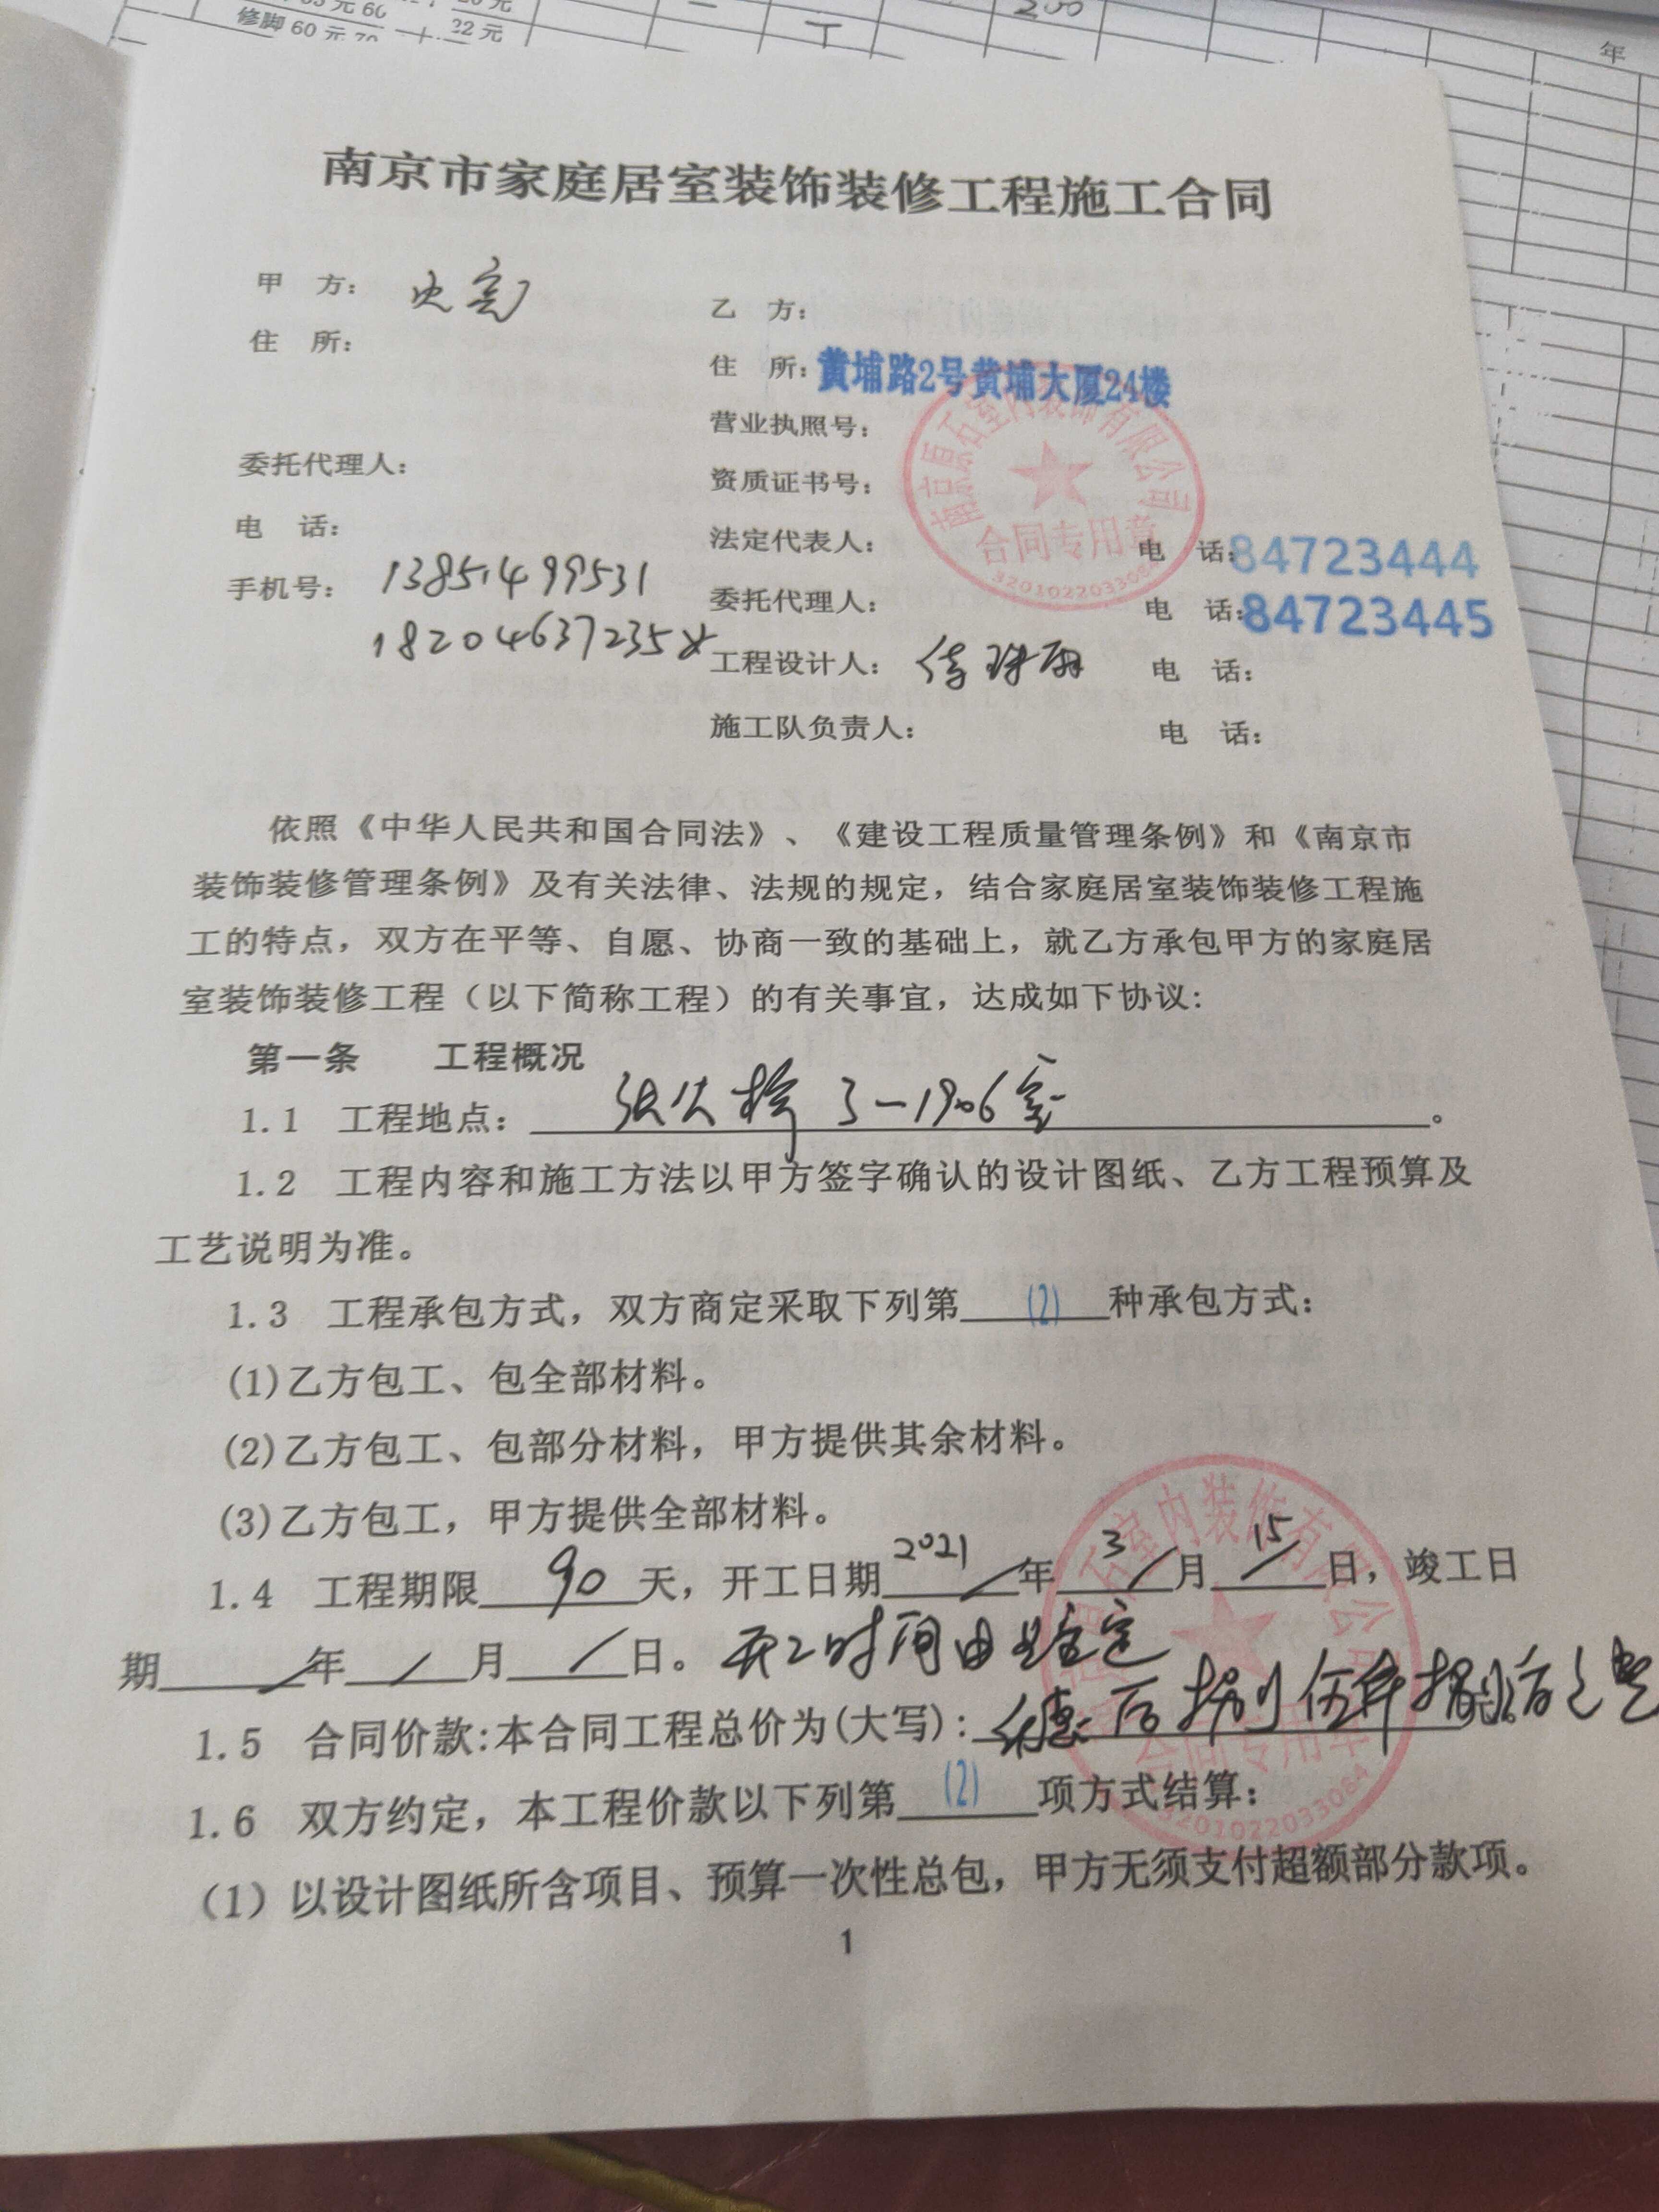 修脚60元70
22元
200
年
南京市家庭居室装饰装修工程施工合同
甲 方：
乙 方：
住 所：
住 所：黄埔路2号黄埔大厦24楼
营业执照号：
委托代理人：
资质证书号：
电 话：
法定代表人：
电 话：84723444
手机号：13851499531
委托代理人：
电 话：84723445
18204637235
工程设计人：
电 话：
施工队负责人：
电 话：
室内装饰有限公司
合同专用章
依照《中华人民共和国合同法》、《建设工程质量管理条例》和《南京市
装饰装修管理条例》及有关法律、法规的规定，结合家庭居室装饰装修工程施
工的特点，双方在平等、自愿、协商一致的基础上，就乙方承包甲方的家庭居
室装饰装修工程（以下简称工程）的有关事宜，达成如下协议：
第一条 工程概况
1.1 工程地点： 3-1906室。
1.2 工程内容和施工方法以甲方签字确认的设计图纸、乙方工程预算及
工艺说明为准。
1.3 工程承包方式，双方商定采取下列第(2)种承包方式：
(1)乙方包工、包全部材料。
(2)乙方包工、包部分材料，甲方提供其余材料。
(3)乙方包工，甲方提供全部材料。
1.4 工程期限90天，开工日期2021年3月15日，竣工日
期/年/月/日。开工时间由
1.5 合同价款:本合同工程总价为(大写):
1.6 双方约定，本工程价款以下列第(2)项方式结算：
（1）以设计图纸所含项目、预算一次性总包，甲方无须支付超额部分款项。
室内装饰有限公司
合同专用章
3201022033084
1